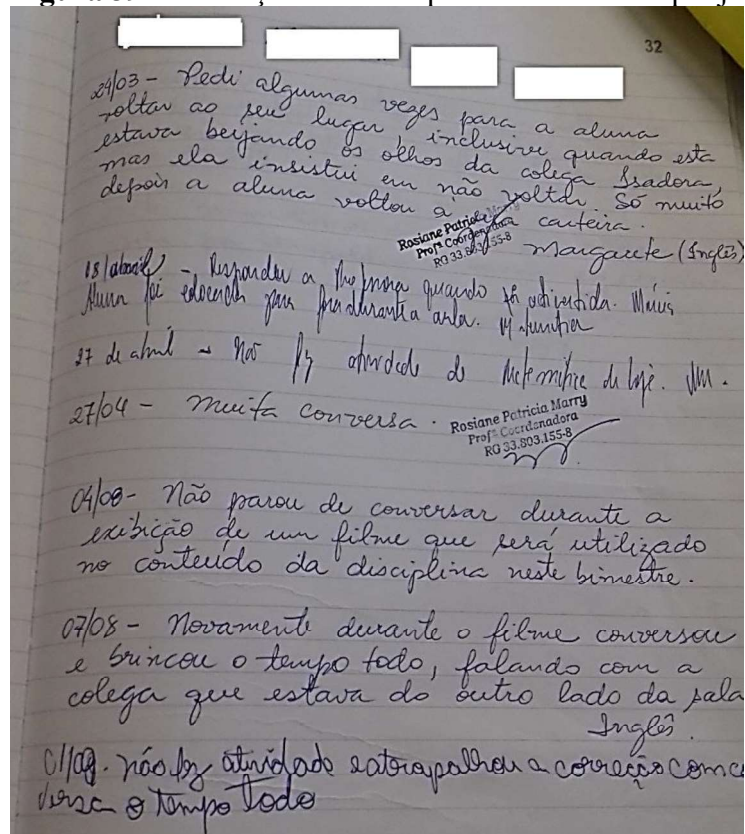 32
24/03 - Pedi algumas vezes para a aluna
voltar ao seu lugar, inclusive quando esta
estava beijando os olhos da colega Isadora,
mas ela insistiu em não voltar. Só muito
depois a aluna voltou à carteira.
Rosiane Patricia Marry
Profª Coordenadora
RG 33.803.155-8
Margarete (Inglês)
18/abril - Respondeu a professora quando foi advertida.
Aluna foi durante a aula.
27 de abril - Não fez atividade de Matemática de hoje.
27/04 - Muita conversa.
Rosiane Patricia Marry
Profª Coordenadora
RG 33.803.155-8
04/08 - Não parou de conversar durante a
exibição de um filme que será utilizado
no conteúdo da disciplina neste bimestre.
07/08 - Novamente durante o filme conversou
e brincou o tempo todo, falando com a
colega que estava do outro lado da sala
Inglês.
não fez atividade e atrapalhou a correção com co
versa o tempo todo